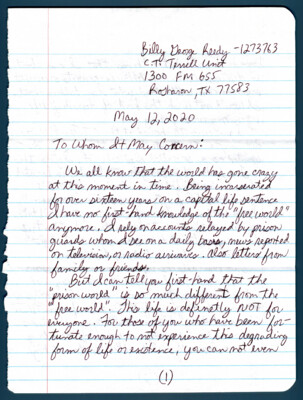 Billy George Reedy -1273763
C.T. Terrell Unit
1300 FM 655
Rosharon, TX 77583
May 12, 2020
To Whom It May Concern:
We all know that the world has gone crazy
at this moment in time. Being incarserated
for over sixteen years on a capital life sentence
I have no first-hand knowledge of the "free world"
anymore. I rely on accounts relayed by prison
guards whom I see on a daily basis, news reported
on television, or radio airwaves. also letters from
family or friends.
But I can tell you first-hand that the
"prison world" is so much different from the
"free world". This life is definetly NOT for
everyone. For those of you who have been for-
tunate enough to not experience this degrading
form of life or existence, you can not even
(1)